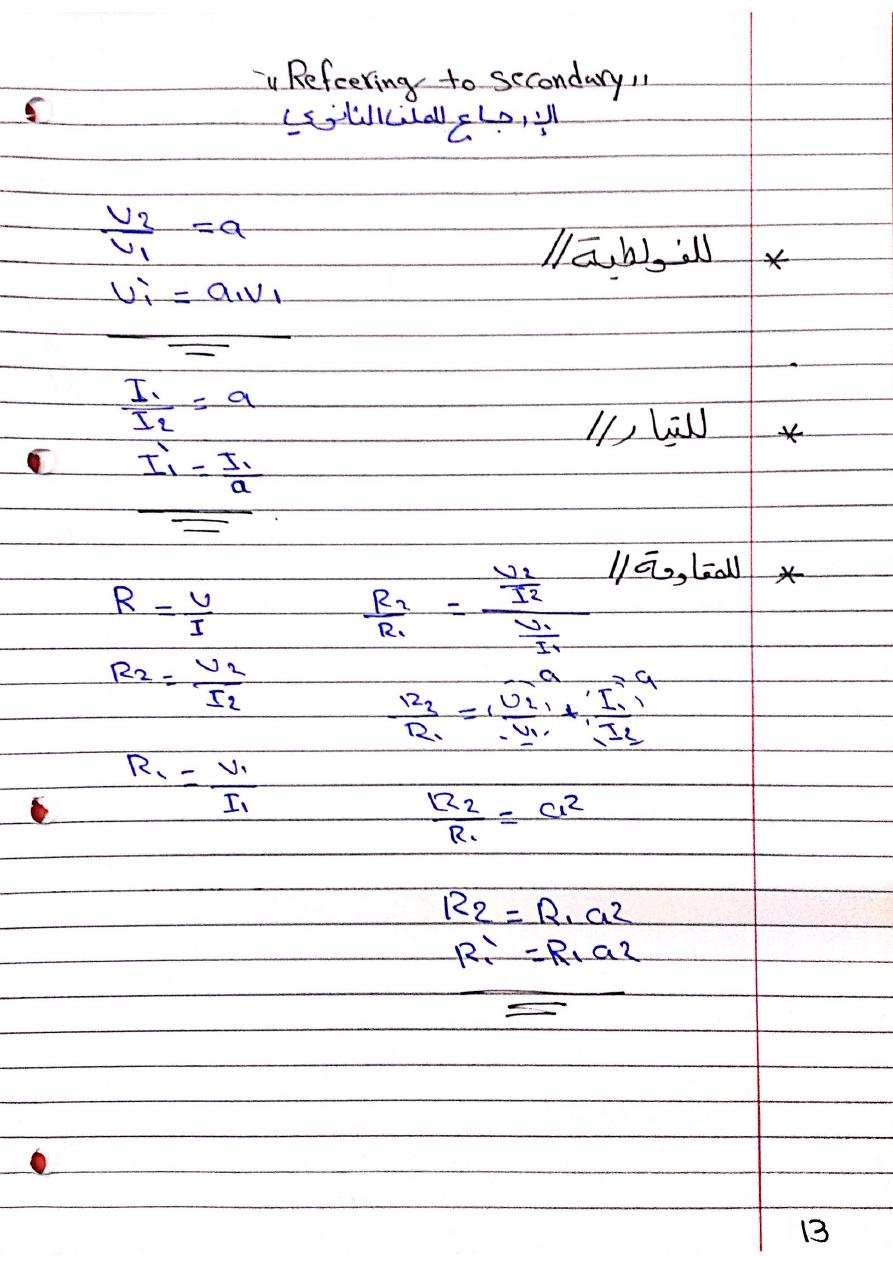 "Refeering to secondary"
الإرجاع للملف الثانوي
* للفولطية //
V2/V1 = a
V1` = a1V1
* للتيار //
I1/I2 = a
I1` = I1/a
* للمقاومة //
R = V/I
R2 = V2/I2
R1 = V1/I1
R2/R1 = (V2/I2)/(V1/I1)
= a = a
R2/R1 = (V2/V1) * (I1/I2)
R2/R1 = a2
R2 = R1 a2
R1` = R1 a2
13